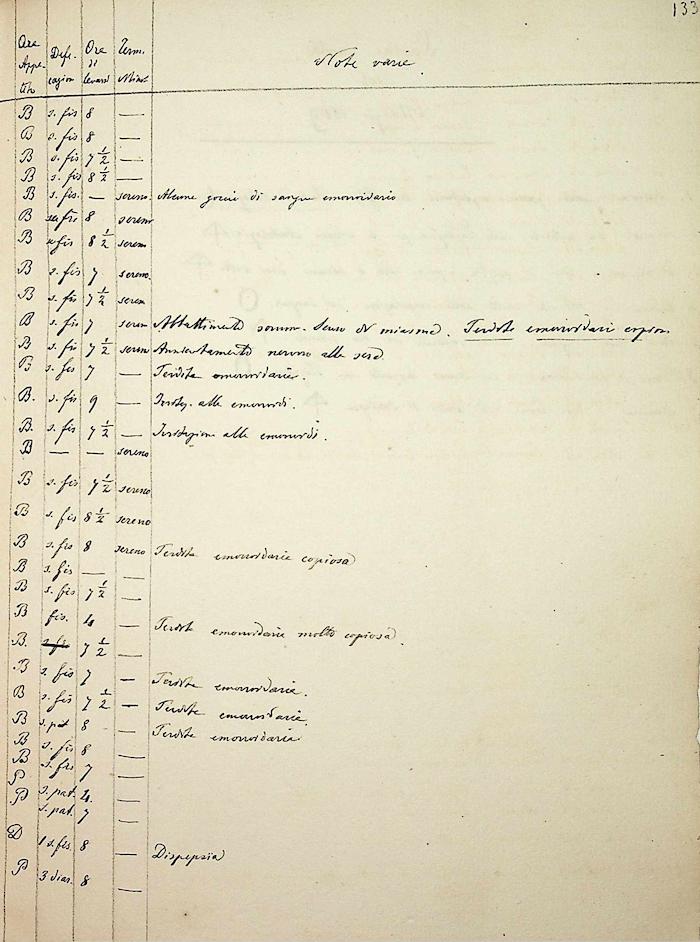 133
Ore Appetito | Defecazion | Ore di levarsi | Term. Minut | Note varie.
B s. fis 8 —
B s. fis 8 —
B s. fis 7 1/2 —
B s. fis 8 1/2 —
B s. fis. — sereno. Alcune goccie di sangue emorroidario
B fis 8 sereno
B fis 8 1/2 seren
B s. fis 7 sereno.
B s. fis 7 1/2 seren
B s. fis 7 seren Abbattimento somm. Senso di miasma. Perdite emorroidari copios.
B s. fis 7 1/2 seren nervoso alla sera
B s. fis 7 — Perdita emorroidarie.
B. s. fis 9 — Irritaz. alle emorroidi.
B. s. fis 7 1/2 — Irritazione alle emorroidi.
B — — sereno
B s. fis 7 1/2 sereno
B s. fis 8 1/2 sereno
B s. fis 8 sereno Perdita emorroidaria copiosa
B s. fis — —
B s. fis 7 1/2 —
B fis. 4 — Perdite emorroidaria molto copiosa.
B. s. fis 7 1/2 —
B s. fis 7 — Perdite emorroidaria.
B s. fis 7 1/2 — Perdite emorroidarie.
B s. pat 8 — Perdite emorroidaria
B s. fis 8 —
B s. fis 7 —
P s. pat. 4. —
P s. pat. 7 —
D 1 s. fis. 8 — Dispepsia
P 3 diar. 8 —